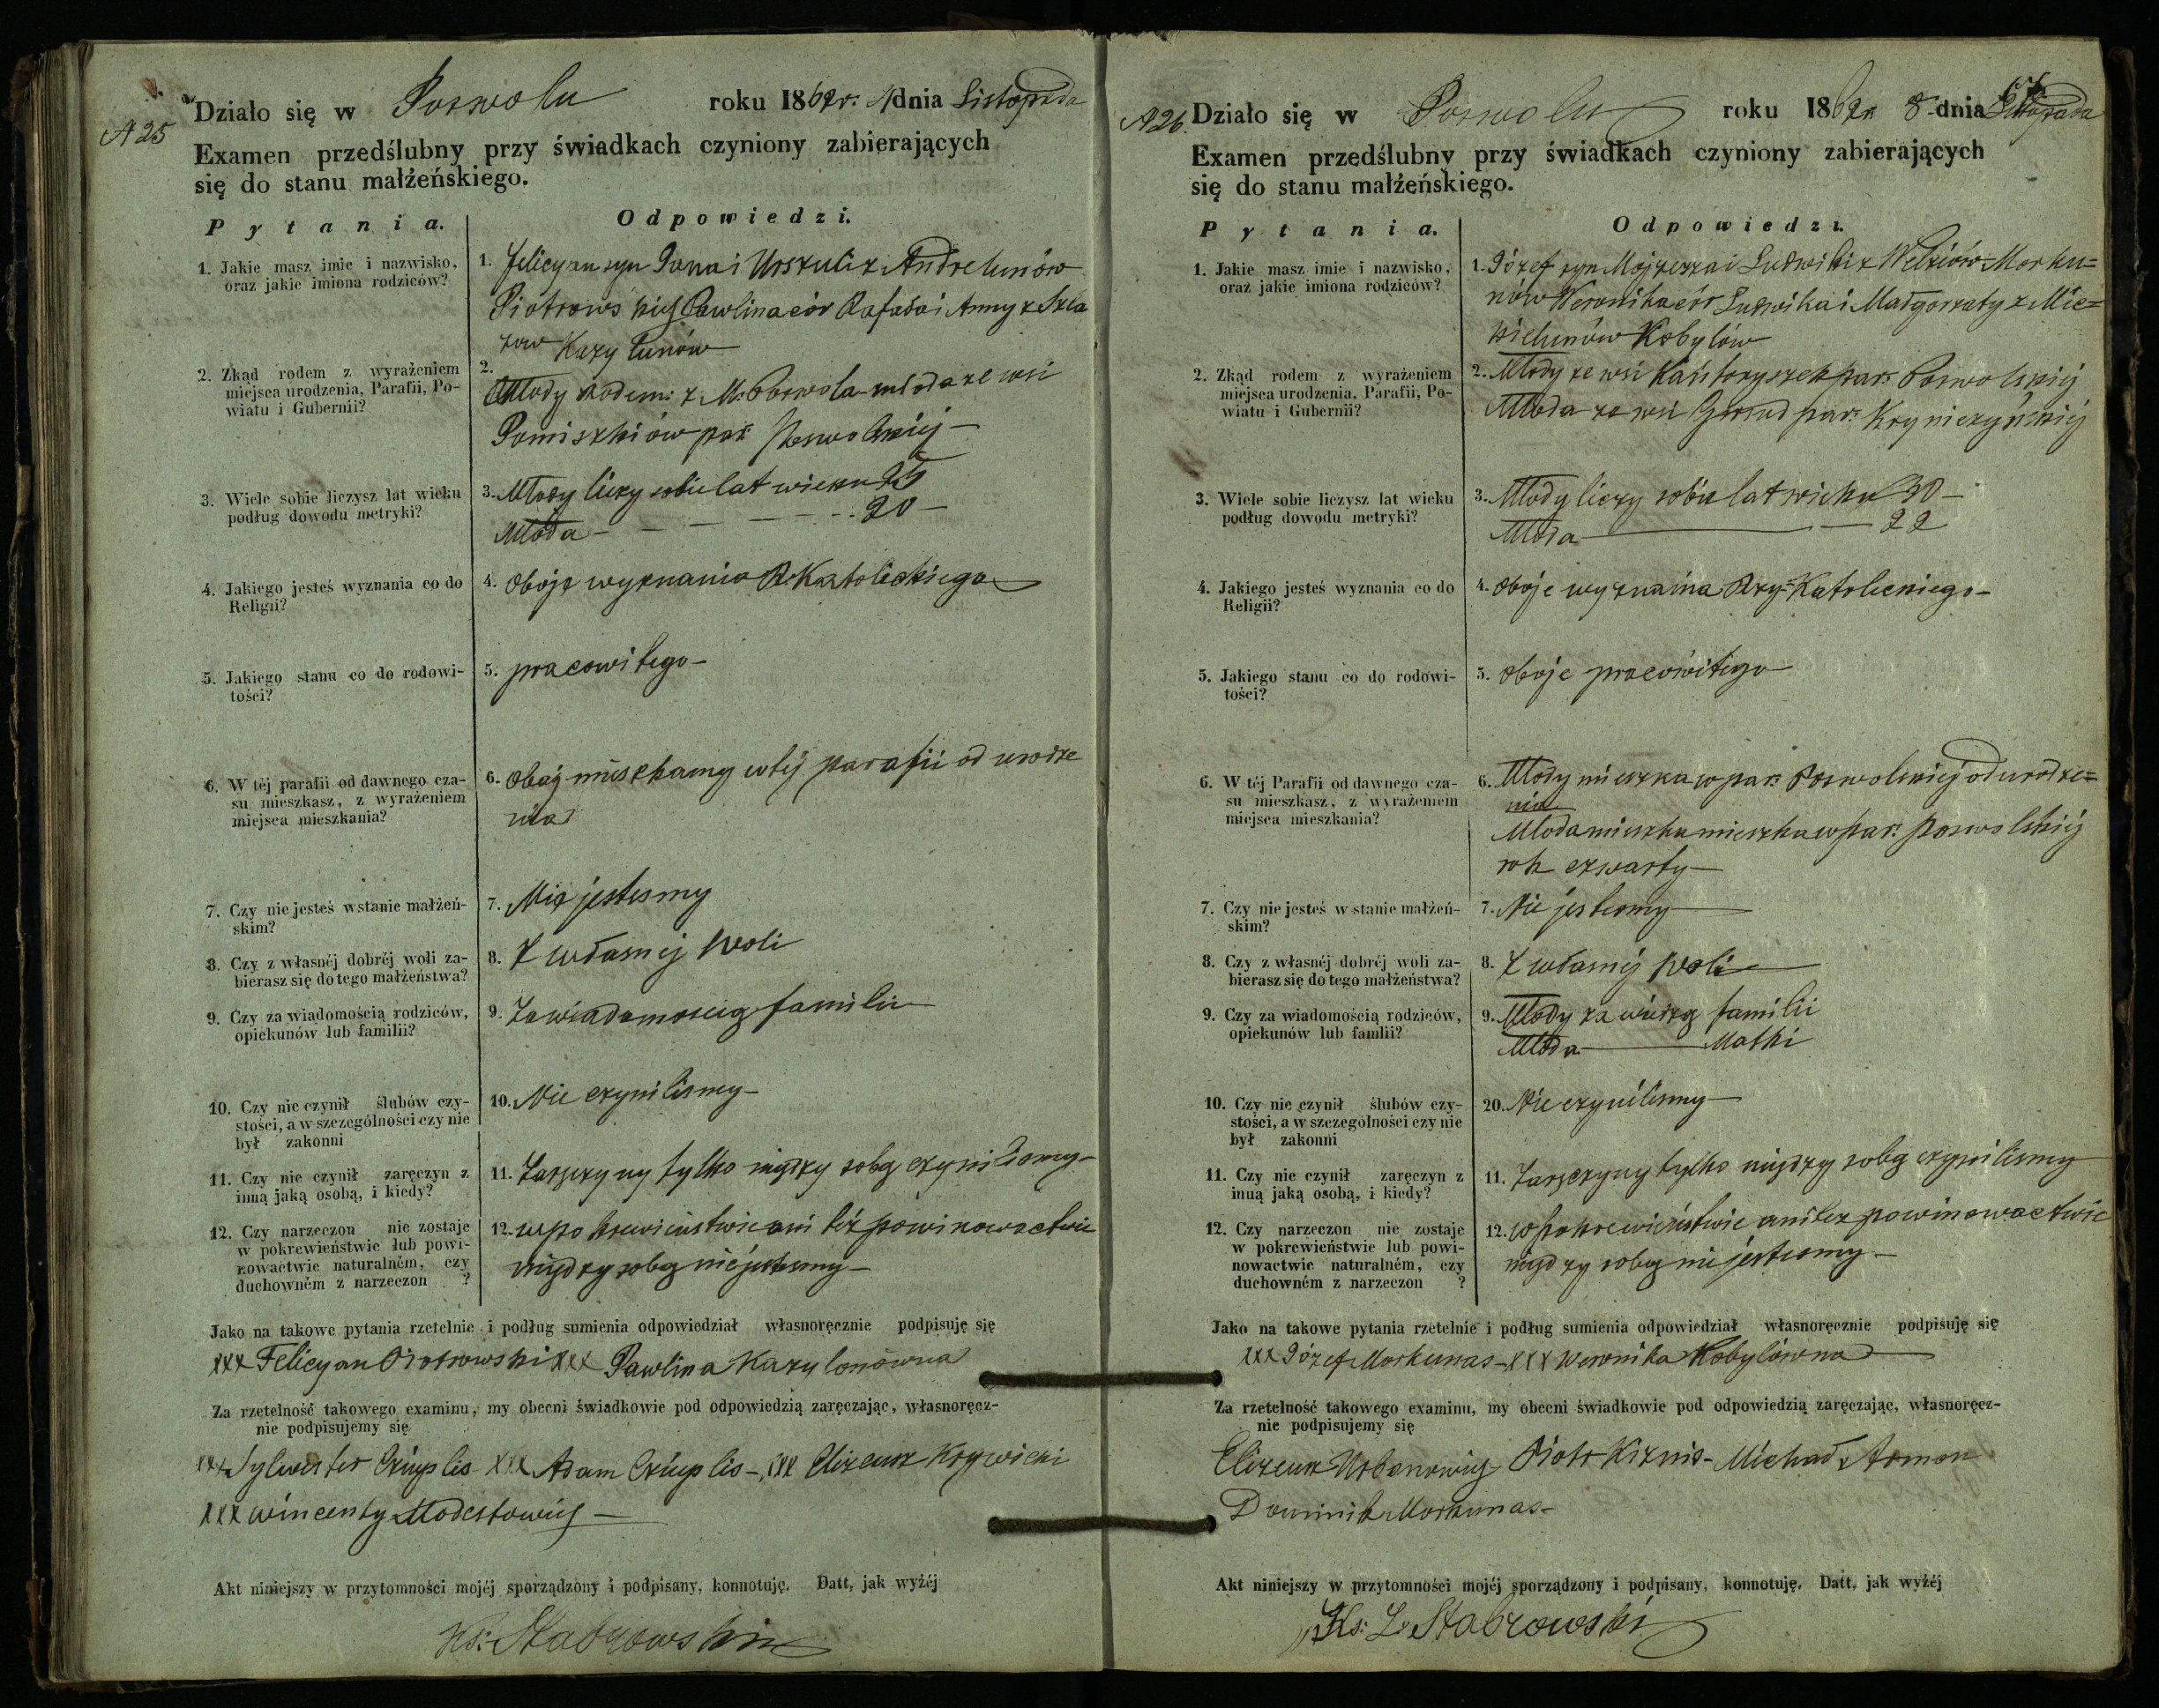 N 25 Działo się w Poswolu roku 1867 r. 4 dnia Listopada
Examen przedślubny przy świadkach czyniony zabierających
się do stanu małżeńskiego.
Pytania. Odpowiedzi.
1. Jakie masz imie i nazwisko,
oraz jakie imiona rodziców?
1. Felicyan syn Jana i Urszuli z Andrelunów
Piotrowskich Pawlina cór Rafała i Anny z
Kazylunów
2. Zkąd rodem z wyrażeniem
miejsca urodzenia, Parafii, Po-
wiatu i Gubernii?
2.
Młody rodem z M. Poswola młoda ze wsi
Pomiszkiów par: Poswolskiéj
3. Wiele sobie liczysz lat wieku
podług dowodu metryki?
3. Młody liczy sobie lat wieku 25
Młoda 20
4. Jakiego jesteś wyznania co do
Religii?
4. oboje wyznania R Katolickiego
5. Jakiego stanu co do rodowi-
tości?
5. pracowitego
6. W téj parafii od dawnego cza-
su mieszkasz, z wyrażeniem
miejsca mieszkania?
6. obaj mieszkamy w téj parafii od urodze
nia
7. Czy nie jesteś w stanie małżeń-
skim?
7. Nie jestesmy
8. Czy z własnéj dobréj woli za-
bierasz się do tego małżeństwa?
8. Z własnej Woli
9. Czy za wiadomością rodziców,
opiekunów lub familii?
9. Za wiadomoscią familii
10. Czy nie czynił ślubów czy-
stości, a w szczególności czy nie
był zakonni
10. Nie czynilismy
11. Czy nie czynił zaręczyn z
inną jaką osobą, i kiedy?
11. Zaręczyny tylko między sobą czynilismy
12. Czy narzeczon nie zostaje
w pokrewieństwie lub powi-
nowactwie naturalném, czy
duchowném z narzeczon ?
12. w pokrewieństwie ani téż powinowactwie
między sobą nie jestesmy
Jako na takowe pytania rzetelnie i podług sumienia odpowiedział własnoręcznie podpisuję się
xxx Felicyan Piotrowski xxx Pawlina Kazylonówna
Za rzetelność takowego examinu, my obecni świadkowie pod odpowiedzią zaręczając, własnoręcz-
nie podpisujemy się
xxx Sylwester Czuplis xxx Adam Czuplis xxx Elizeusz Krywicki
xxx Wincenty Modestowicz
Akt niniejszy w przytomności mojéj sporządzony i podpisany, konnotuję. Datt, jak wyźéj
Ks: Stabrowski
N 26. Działo się w Poswolu roku 1867 r. 8 dnia Listopada
Examen przedślubny przy świadkach czyniony zabierających
się do stanu małżeńskiego.
Pytania. Odpowiedzi.
1. Jakie masz imie i nazwisko,
oraz jakie imiona rodziców?
1. Józef syn Mojżesza i Ludwiki z Welziów Morku=
nów Weronika cór Ludwika i Małgorzaty z Mic=
kielunów Kobylów
2. Zkąd rodem z wyrażeniem
miejsca urodzenia, Parafii, Po-
wiatu i Gubernii?
2. Młody ze wsi Kańtoryszek par: Poswolskiéj
Młoda ze wsi par: Kryniczyńskiéj
3. Wiele sobie liczysz lat wieku
podług dowodu metryki?
3. Młody liczy sobie lat wieku 30
Młoda 22
4. Jakiego jesteś wyznania co do
Religii?
4. oboje wyznania Rzy= Katolickiego
5. Jakiego stanu co do rodowi-
tości?
5. oboje pracowitego
6. W téj Parafii od dawnego cza-
su mieszkasz, z wyrażeniem
miejsca mieszkania?
6. Młody mieszka w par: Poswolskiej od urodze=
nia
Młoda mieszka mieszka w par: Poswolskiéj
rok czwarty
7. Czy nie jesteś w stanie małżeń-
skim?
7. Nie jestesmy
8. Czy z własnéj dobréj woli za-
bierasz się do tego małżeństwa?
8. Z własnéj Woli
9. Czy za wiadomością rodziców,
opiekunów lub famlii?
9. Młody za wiedzą familii
Młoda Matki
10. Czy nie czynił ślubów czy-
stości, a w szczególności czy nie
był zakonni
20. Nie czynilismy
11. Czy nie czynił zaręczyn z
inną jaką osobą, i kiedy?
11. Zaręczyny tylko między sobą czynilismy
12. Czy narzeczon nie zostaje
w pokrewieństwie lub powi-
nowactwie naturalném, czy
duchowném z narzeczon ?
12. w pokrewieństwie ani tez powinowactwie
między sobą nie jestesmy
Jako na takowe pytania rzetelnie i podług sumienia odpowiedział własnoręcznie podpisuję się
xxx Józef Morkunas xxx Weronika Kobylówna
Za rzetelność takowego examinu, my obecni świadkowie pod odpowiedzią zaręczając, własnoręcz-
nie podpisujemy się
Elizeusz Urbanowicz Piotr Kiznis Michał Armon
Dominik Morkunas
Akt niniejszy w przytomności mojéj sporządzony i podpisany, konnotuję. Datt, jak wyźéj
Ks: L. Stabrowski